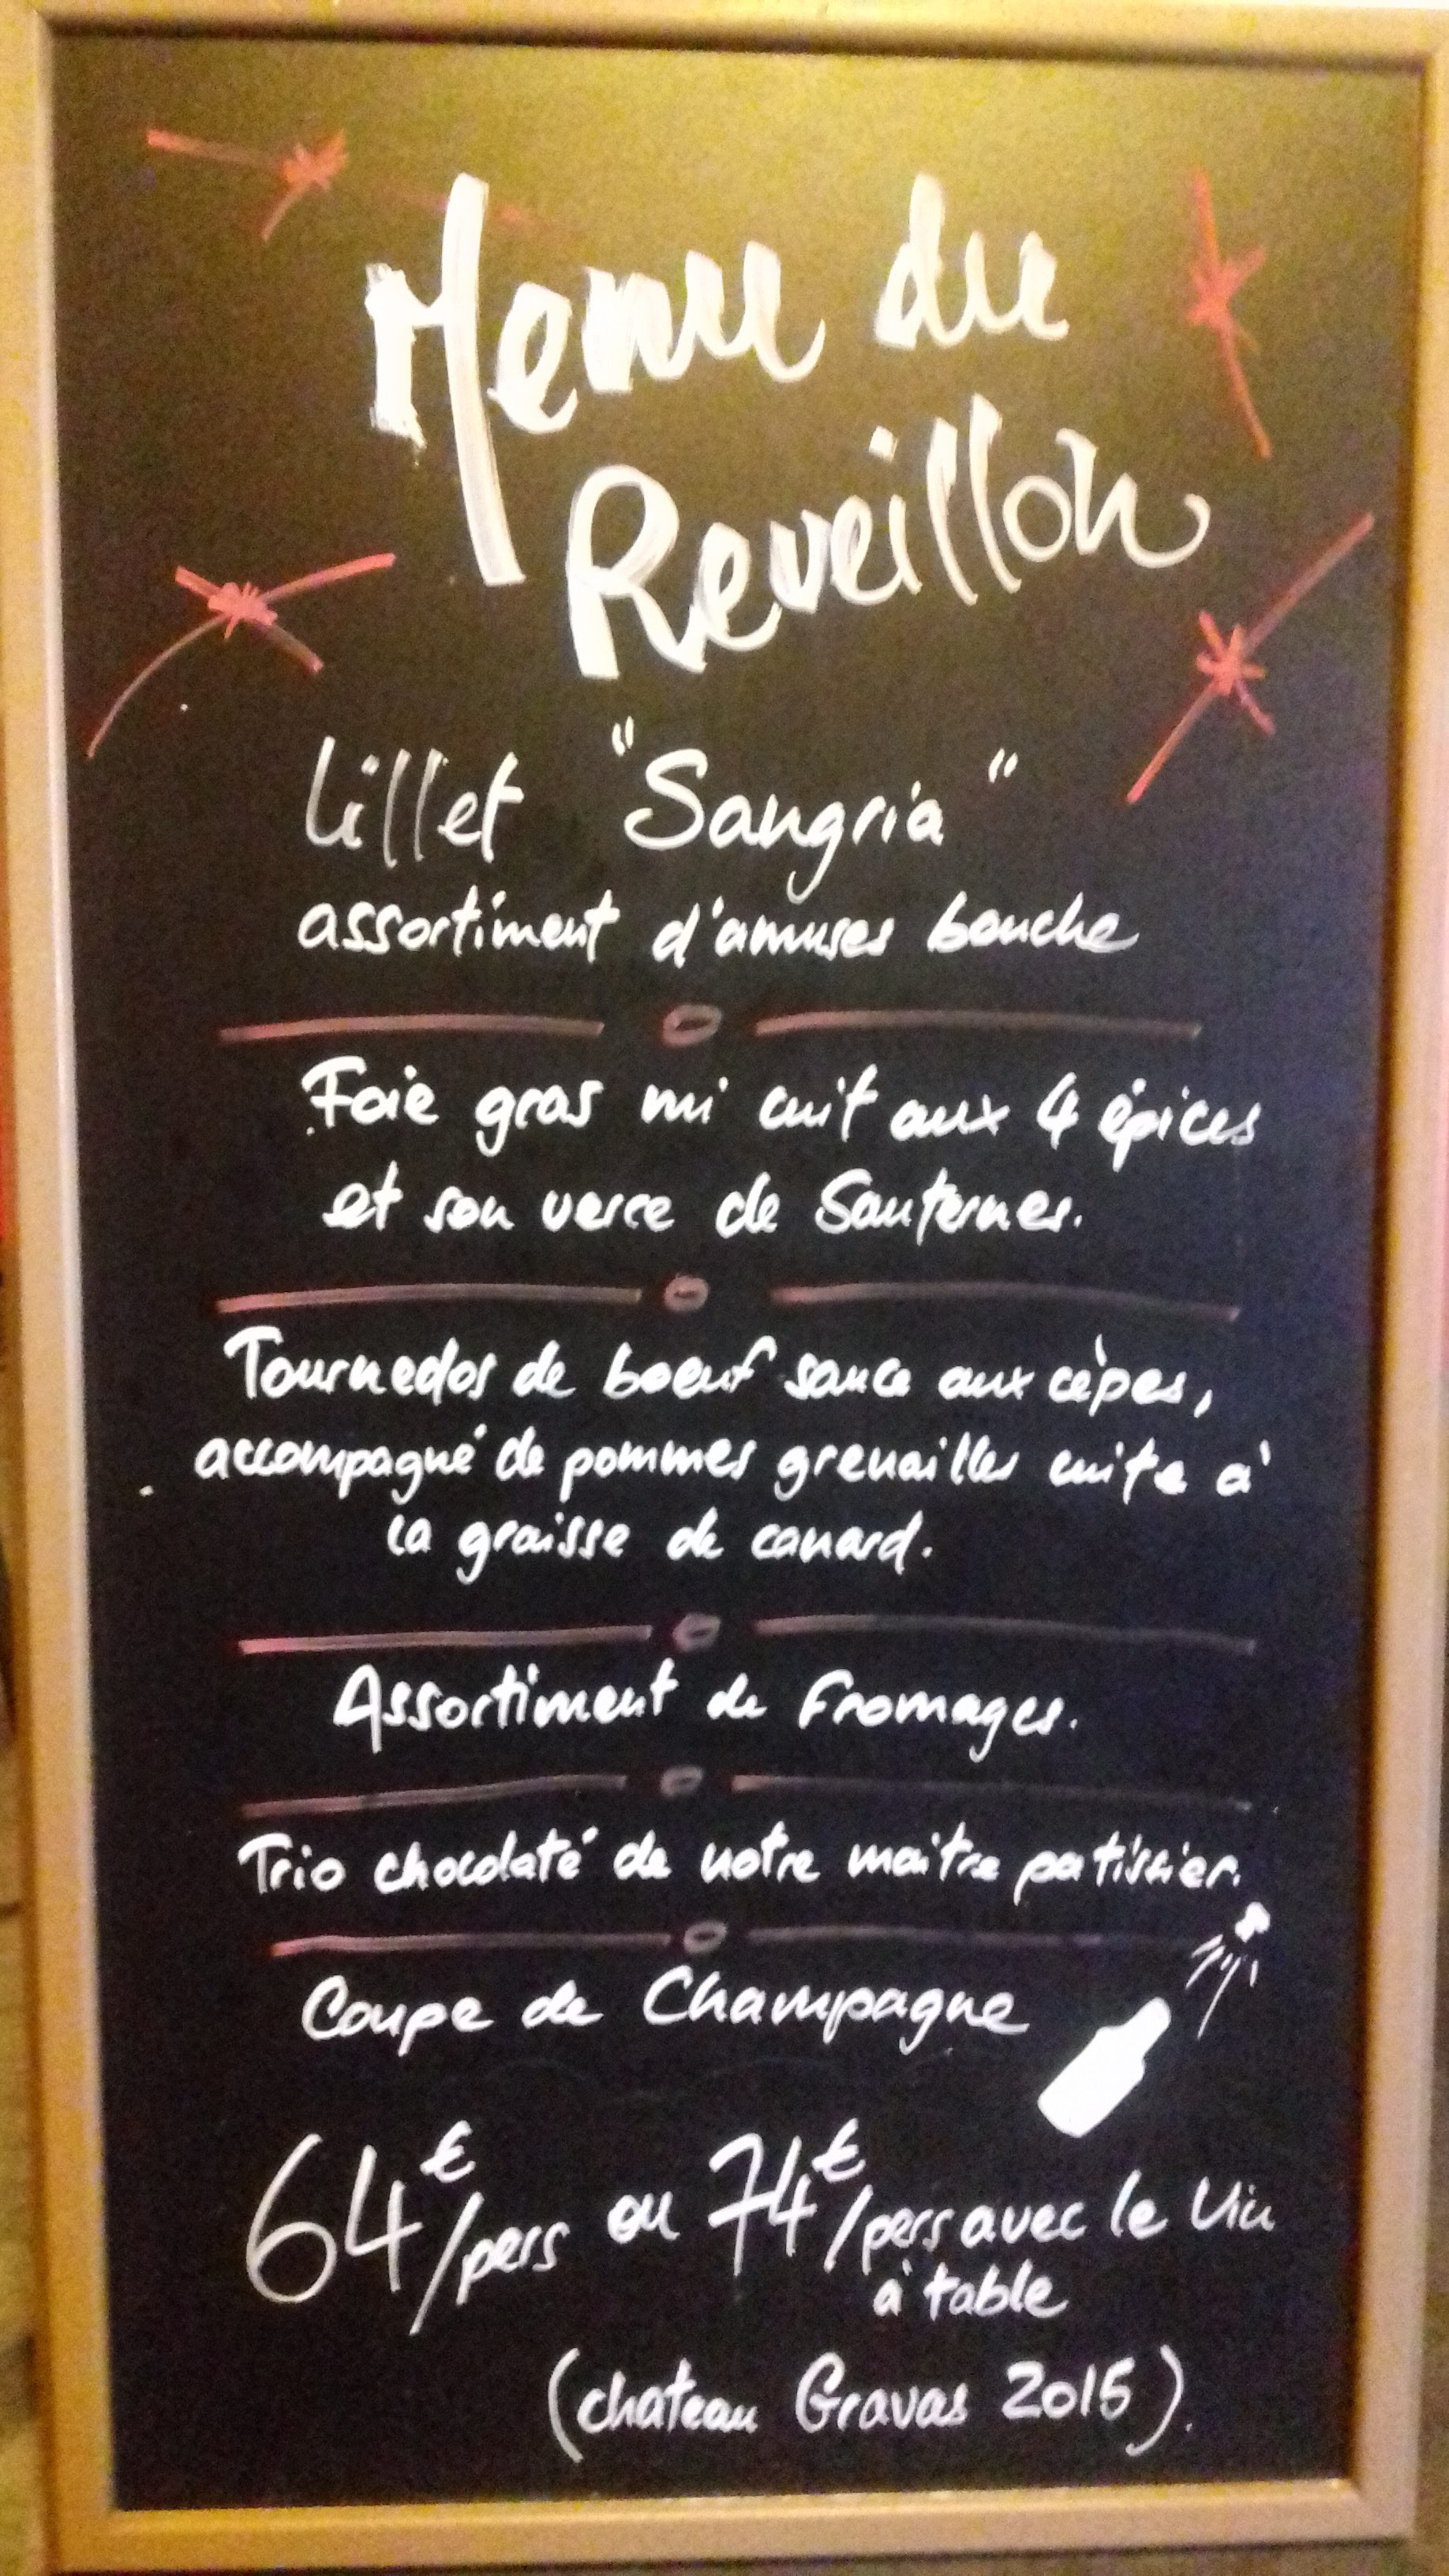 Menu du
Reveillon
Lillet "Sangria"
assortiment d'amuses bouche
Foie gras mi cuit aux 4 épices
et son verre de Sauternes.
Tournedos de boeuf sauce aux cèpes,
accompagné de pommes grenailles cuite à
la graisse de canard.
Assortiment de fromages.
Trio chocolaté de notre maitre patissier.
Coupe de Champagne
64€/pers ou 74€/pers avec le Vin
à table
(chateau Gravas 2015).